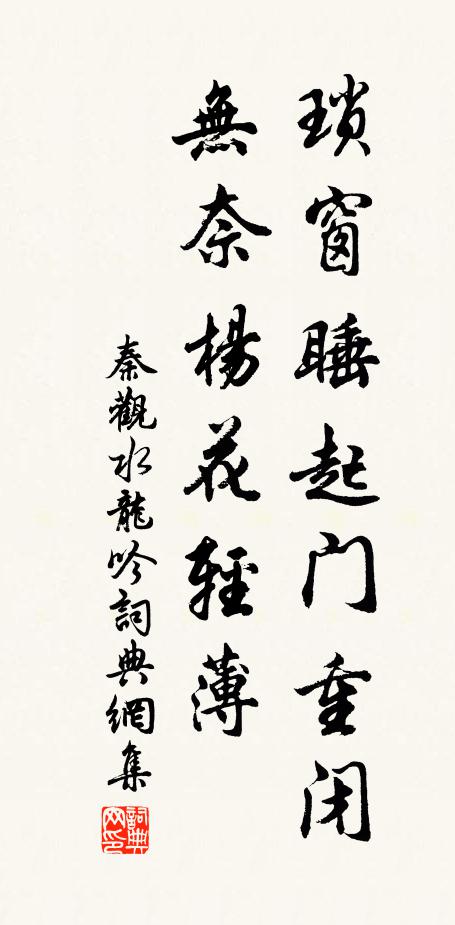 瑣窗睡起门重闭
無奈楊花輕薄
秦觀水龍吟詞典網集
詞典網印